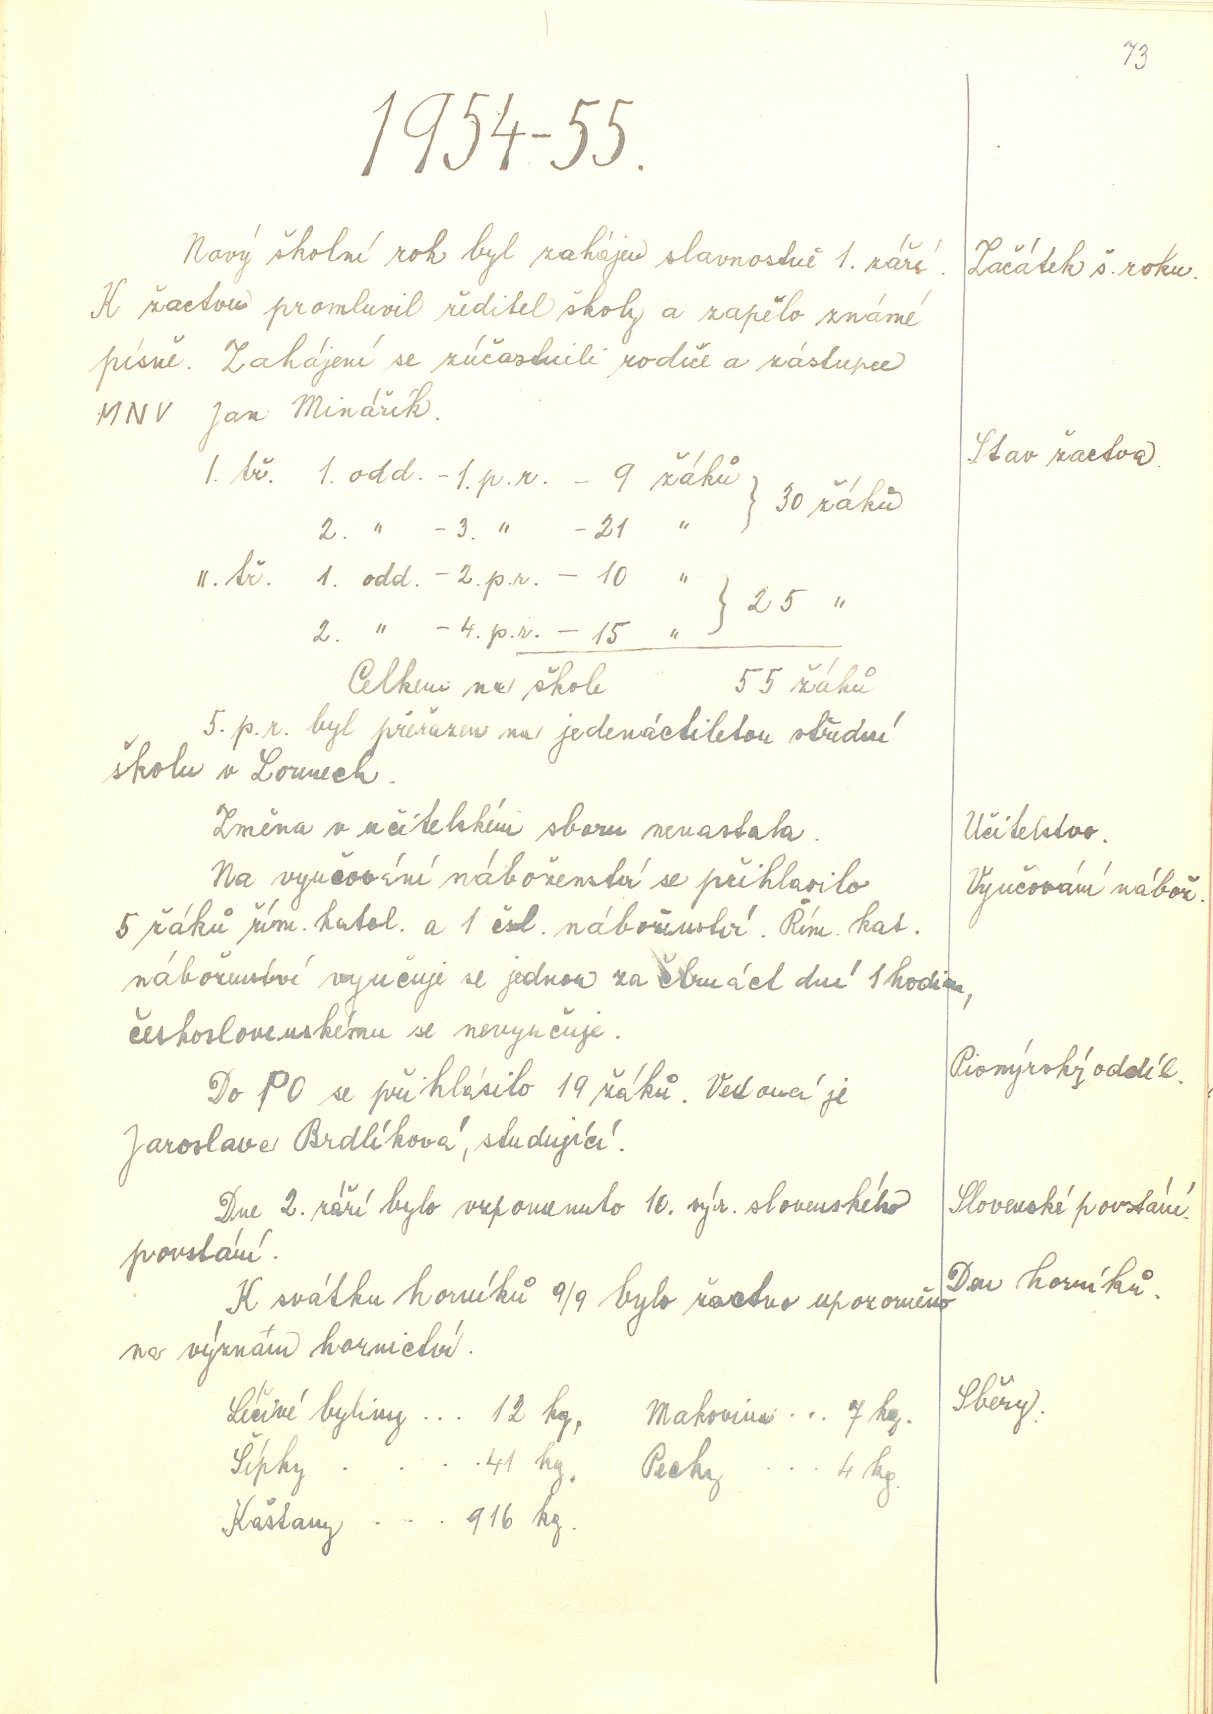 73
1954-55.
Nový školní rok byl zahájen slavnostně 1. září.
Začátek š. roku.
K žactvu promluvil ředitel školy a zapělo známé
písně. Zahájení se zúčastnili rodiče a zástupce
MNV Jan Minářík.
Stav žactva.
I. tř. 1. odd. - 1. p. r. - 9 žáků
2. " - 3. " - 21 " } 30 žáků
II. tř. 1. odd. - 2. p. r. - 10 "
2. " - 4. p. r. - 15 " } 25 "
Celkem na škole 55 žáků
5. p. r. byl přeřazen na jedenáctiletou střední
školu v Lounech.
Změna v učitelském sboru nenastala.
Učitelstvo.
Na vyučování náboženství se přihlásilo
Vyučování nábož.
5 žáků řím. katol. a 1 čsl. náboženství. Řím. kat.
náboženství vyučuje se jednou za čtrnáct dní 1 hodinu,
československému se nevyučuje.
Pionýrský oddíl.
Do PO se přihlásilo 19 žáků. Vedoucí je
Jaroslava Brdlíková, studující.
Dne 2. září bylo vzpomenuto 10. výr. slovenského
Slovenské povstání.
povstání.
K svátku horníků 9/9 bylo žactvo upozorněno
Den horníků.
na význam hornictví.
Léčivé byliny ... 12 kg, Makovina ... 7 kg.
Sběry.
Šípky . . . . 41 kg, Pecky ... 4 kg.
Kaštany . . . 916 kg.